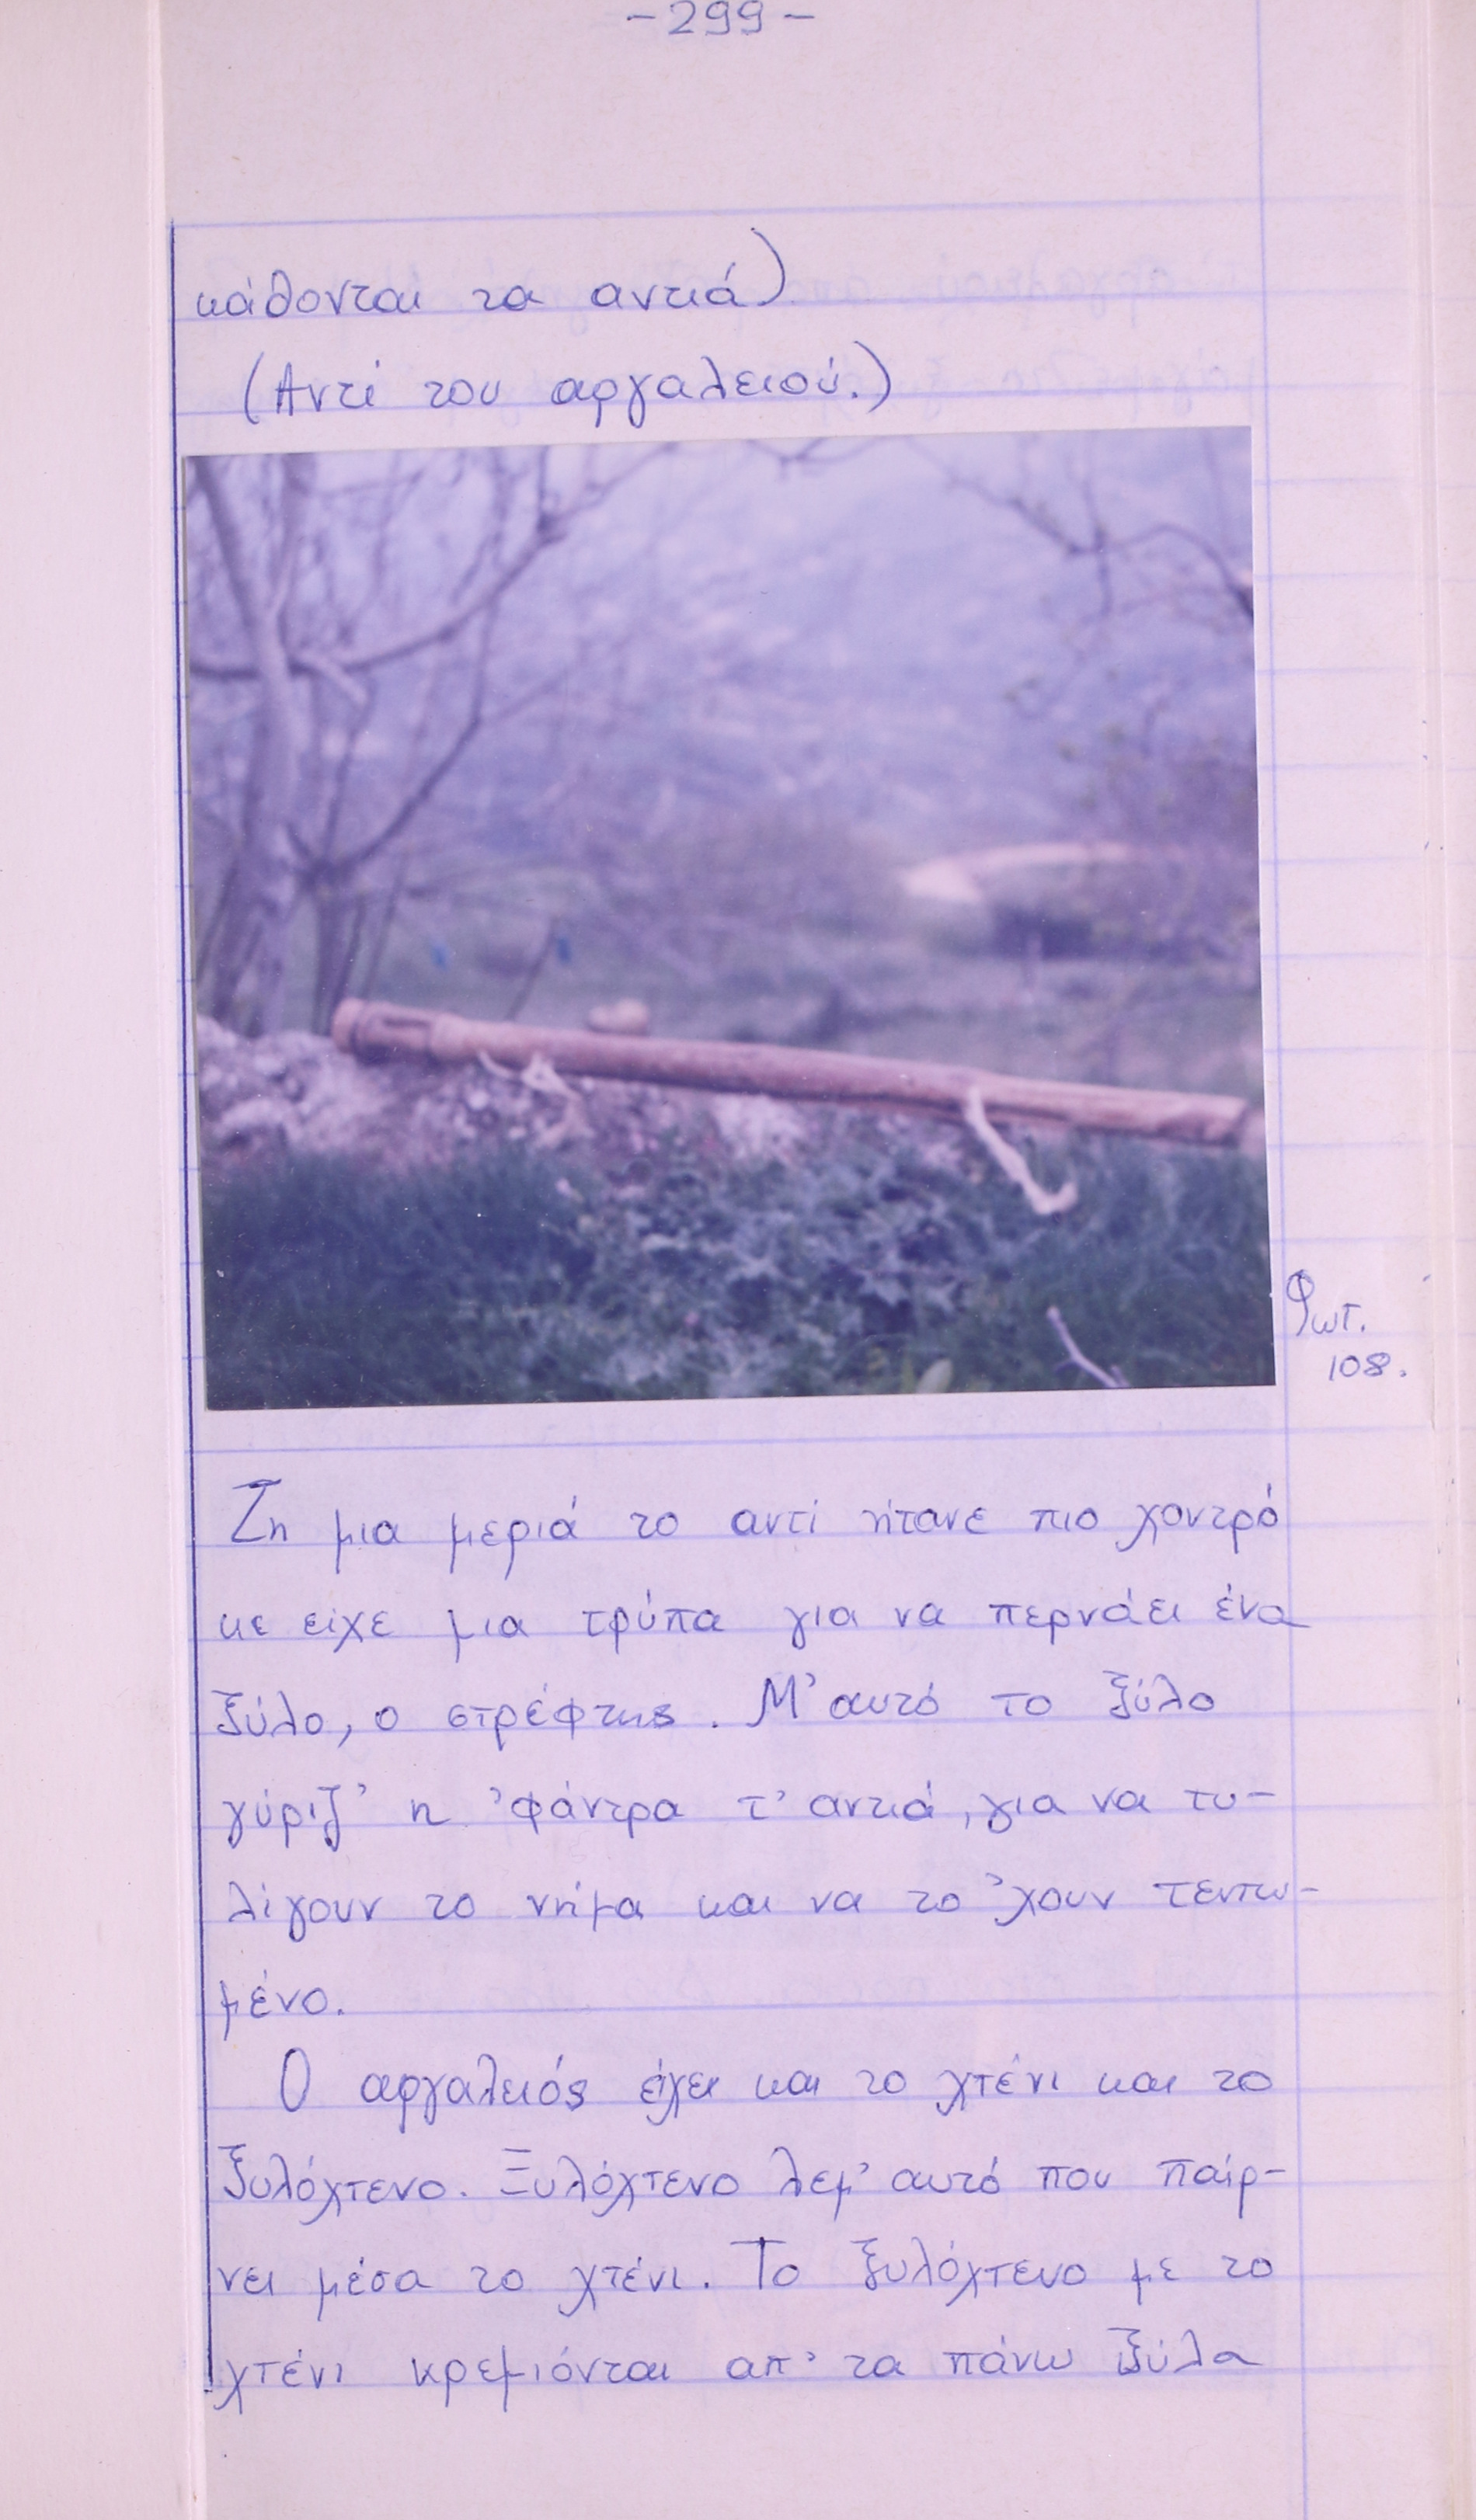 -299-
κάθονται τα αντιά)
(Αντί του αργαλειού.)
Φωτ.
108.
Στη μια μεριά το αντί ήτανε πιο χοντρό
κε είχε μια τρύπα για να περνάει ένα
ξύλο, ο στρέφτης. Μ' αυτό το ξύλο
γύριζ' η 'φάντρα τ' αντιά, για να τυ-
λίγουν το νήμα και να το 'χουν τεντω-
μένο.
Ο αργαλειός έχει και το χτένι και το
ξυλόχτενο. Ξυλόχτενο λεμ' αυτό που παίρ-
νει μέσα το χτένι. Το ξυλόχτενο με το
χτένι κρεμιόνται απ' τα πάνω ξύλα